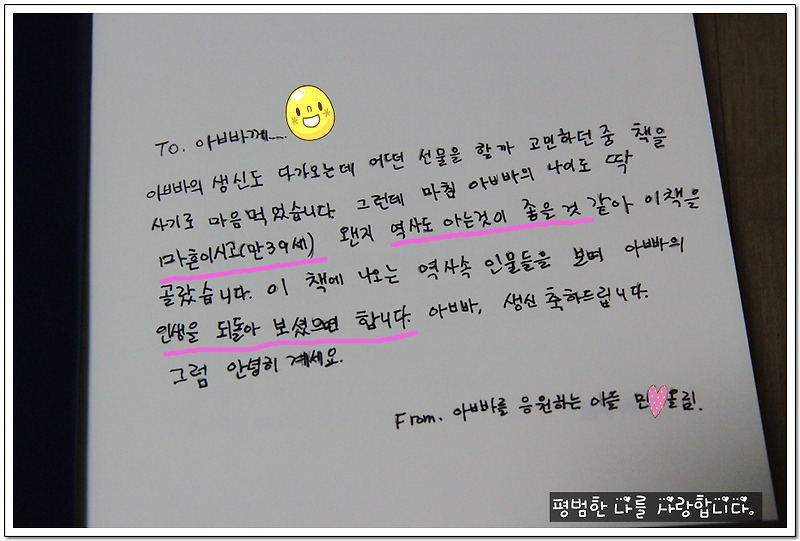 To. 아빠께....
아빠의 생신도 다가오는데 어떤 선물을 할까 고민하던 중 책을
사기로 마음먹었습니다. 그런데 마침 아빠의 나이도 딱
마흔이시고(만39세) 왠지 역사도 아는것이 좋을 것 같아 이책을
골랐습니다. 이 책에 나오는 역사속 인물들을 보며 아빠의
인생을 되돌아 보셨으면 합니다. 아빠, 생신 축하드립니다.
그럼 안녕히 계세요.
From. 아빠를 응원하는 아들 민 올림.
평범한 나를 사랑합니다.